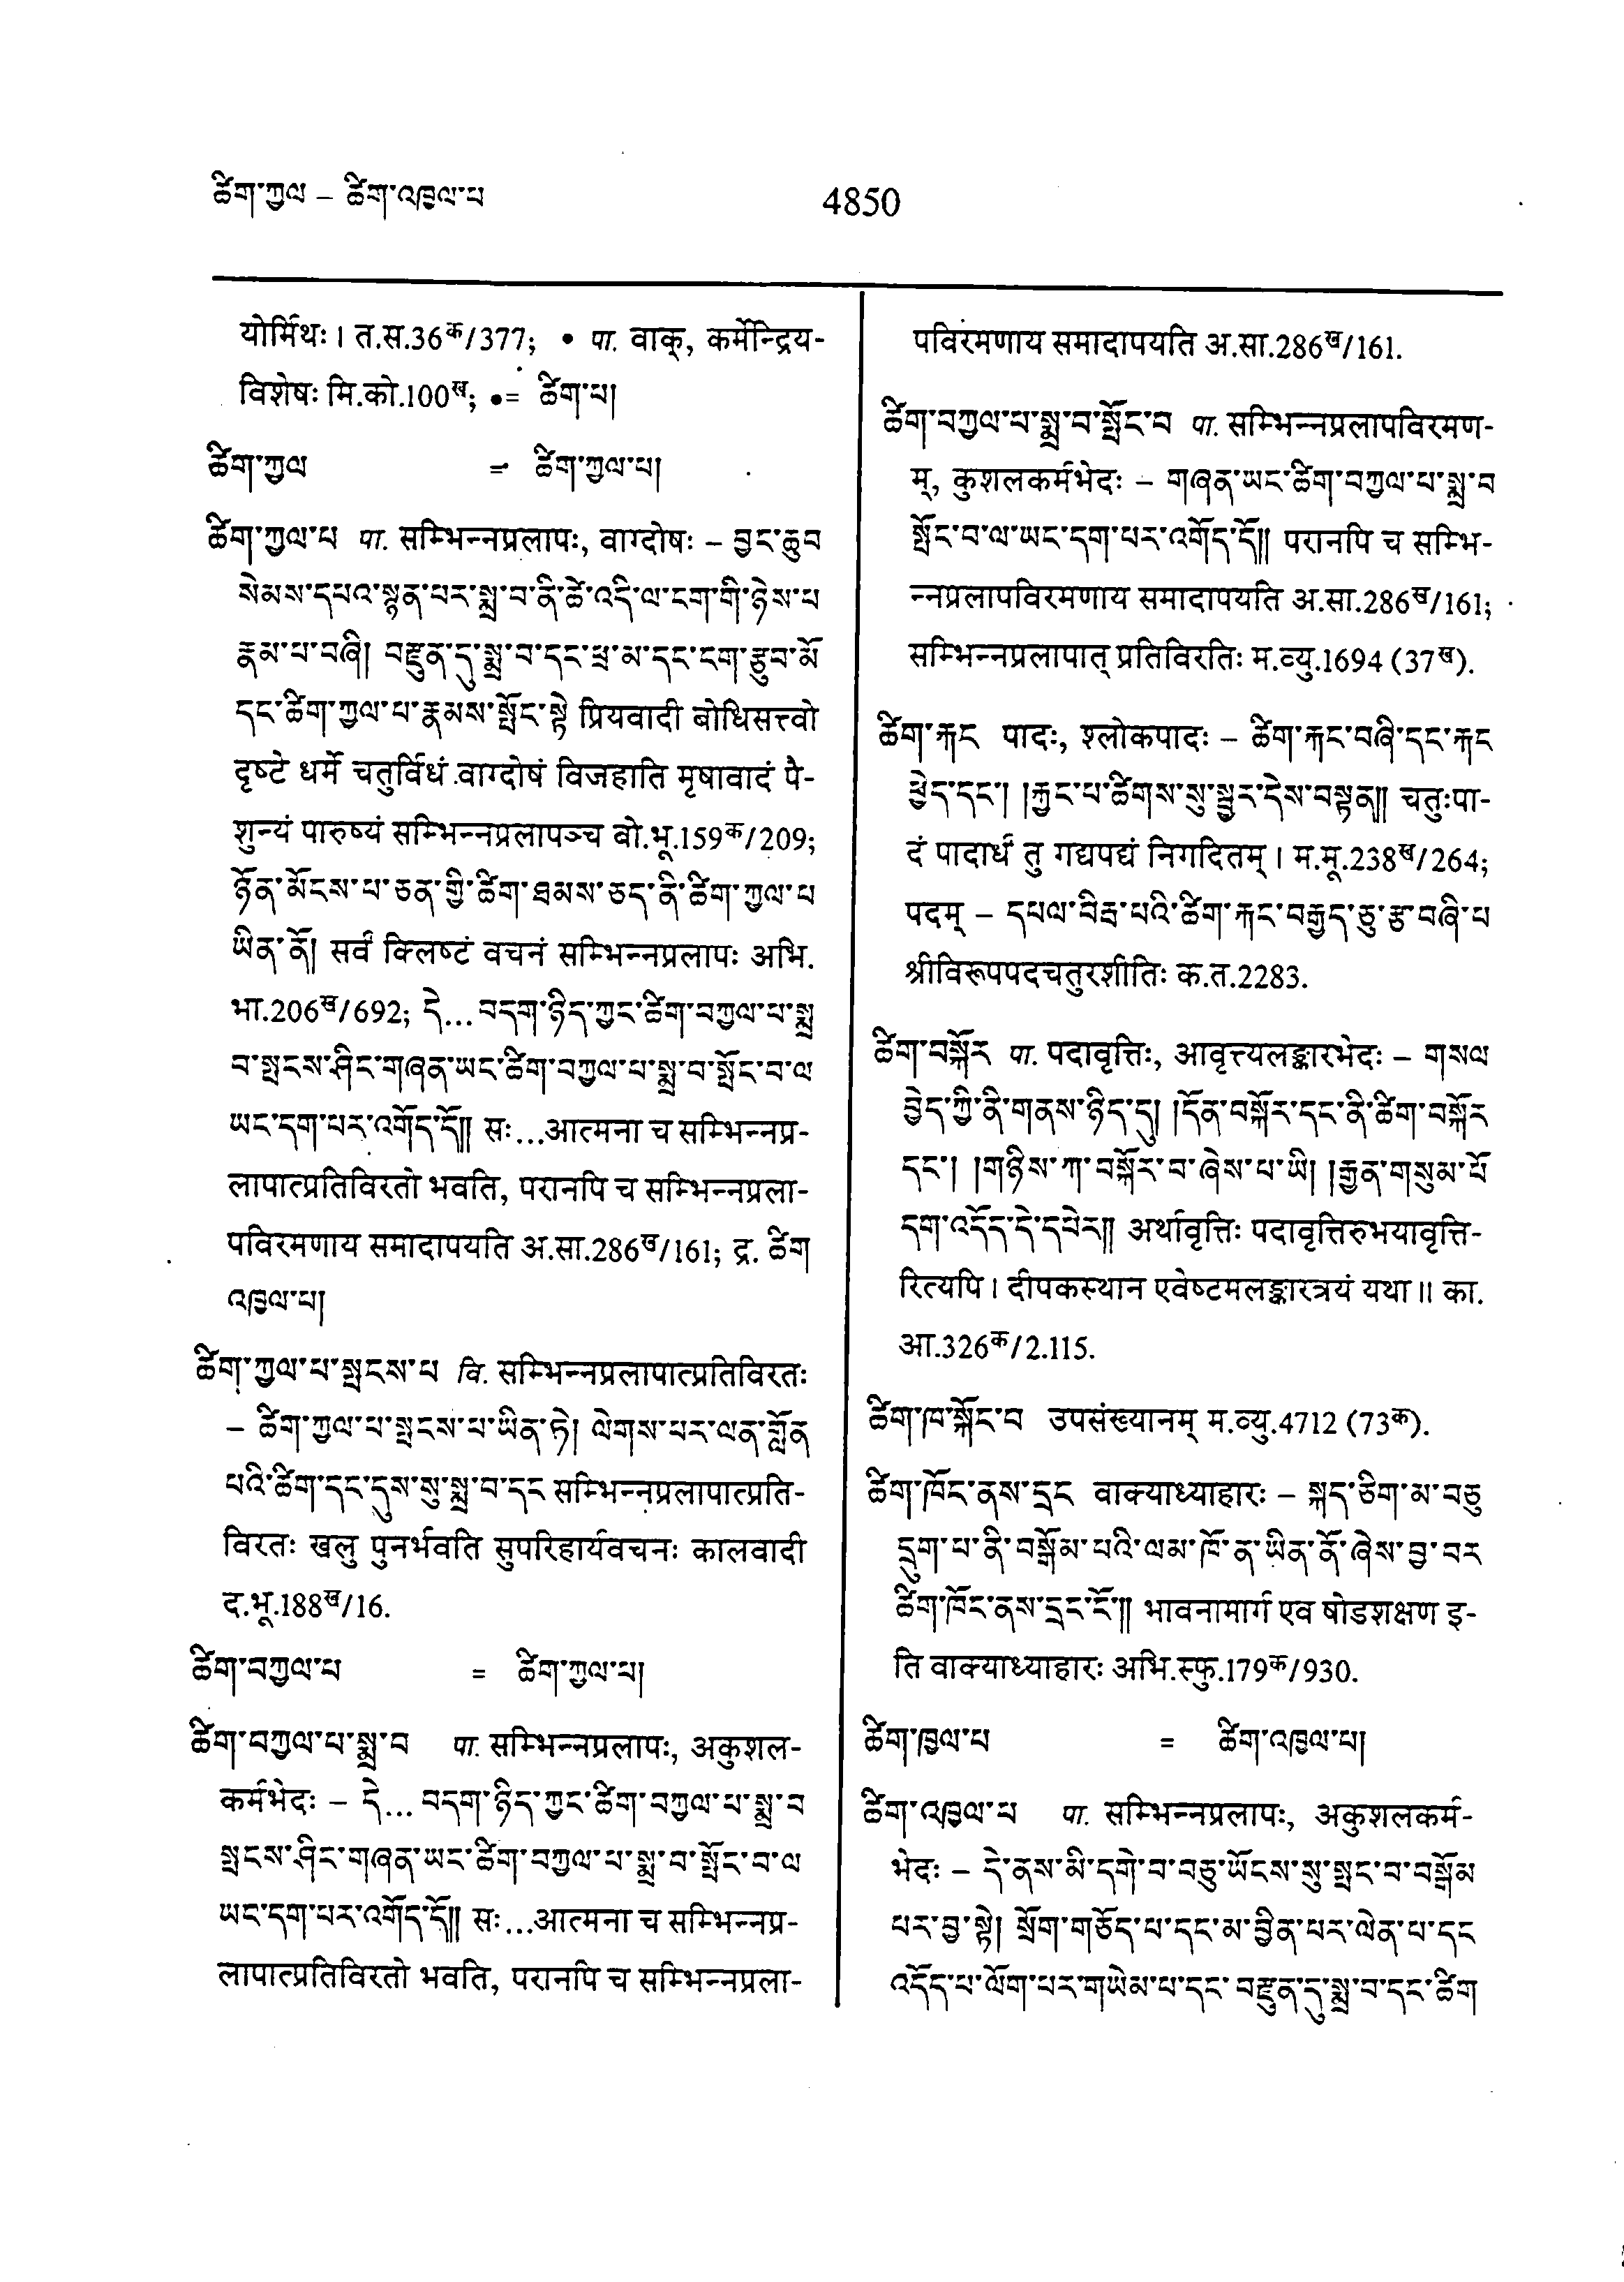 ཚིག་ཀྱལ – ཚིག་འཁྱལ་པ
4850
योर्मिथः। त.स.36क/377; • पा. वाक्, कर्मेन्द्रिय-
विशेषः मि.को.100ख; •= ཚིག་པ།
ཚིག་ཀྱལ = ཚིག་ཀྱལ་པ།
ཚིག་ཀྱལ་པ पा. सम्भिन्नप्रलापः, वाग्दोषः – བྱང་ཆུབ
སེམས་དཔའ་སྙན་པར་སྨྲ་བ་ནི་ཚེ་འདི་ལ་ངག་གི་ཉེས་པ
རྣམ་པ་བཞི། བརྫུན་དུ་སྨྲ་བ་དང་ཕྲ་མ་དང་ངག་རྩུབ་མོ
དང་ཚིག་ཀྱལ་པ་རྣམས་སྤོང་སྟེ प्रियवादी बोधिसत्त्वो
दृष्टे धर्मे चतुर्विधं वाग्दोषं विजहाति मृषावादं पै-
शुन्यं पारुष्यं सम्भिन्नप्रलापञ्च बो.भू.159क/209;
ཉོན་མོངས་པ་ཅན་གྱི་ཚིག་ཐམས་ཅད་ནི་ཚིག་ཀྱལ་པ
ཡིན་ནོ། सर्वं क्लिष्टं वचनं सम्भिन्नप्रलापः अभि.
भा.206ख/692; དེ... བདག་ཉིད་ཀྱང་ཚིག་བཀྱལ་པ་སྨྲ
བ་སྤངས་ཤིང་གཞན་ཡང་ཚིག་བཀྱལ་པ་སྨྲ་བ་སྤོང་བ་ལ
ཡང་དག་པར་འགོད་དོ།། सः...आत्मना च सम्भिन्नप्र-
लापात्प्रतिविरतो भवति, परानपि च सम्भिन्नप्रला-
पविरमणाय समादापयति अ.सा.286ख/161; द्र. ཚིག
འཁྱལ་པ།
ཚིག་ཀྱལ་པ་སྤངས་པ वि. सम्भिन्नप्रलापात्प्रतिविरतः
– ཚིག་ཀྱལ་པ་སྤངས་པ་ཡིན་ཏེ། ལེགས་པར་ལན་གློན
པའི་ཚིག་དང་དུས་སུ་སྨྲ་བ་དང सम्भिन्नप्रलापात्प्रति-
विरतः खलु पुनर्भवति सुपरिहार्यवचनः कालवादी
द.भू.188ख/16.
ཚིག་བཀྱལ་པ = ཚིག་ཀྱལ་པ།
ཚིག་བཀྱལ་པ་སྨྲ་བ पा. सम्भिन्नप्रलापः, अकुशल-
कर्मभेदः – དེ... བདག་ཉིད་ཀྱང་ཚིག་བཀྱལ་པ་སྨྲ་བ
སྤངས་ཤིང་གཞན་ཡང་ཚིག་བཀྱལ་པ་སྨྲ་བ་སྤོང་བ་ལ
ཡང་དག་པར་འགོད་དོ།། सः...आत्मना च सम्भिन्नप्र-
लापात्प्रतिविरतो भवति, परानपि च सम्भिन्नप्रला-
पविरमणाय समादापयति अ.सा.286ख/161.
ཚིག་བཀྱལ་པ་སྨྲ་བ་སྤོང་བ पा. सम्भिन्नप्रलापविरमण-
म्, कुशलकर्मभेदः – གཞན་ཡང་ཚིག་བཀྱལ་པ་སྨྲ་བ
སྤོང་བ་ལ་ཡང་དག་པར་འགོད་དོ།། परानपि च सम्भि-
न्नप्रलापविरमणाय समादापयति अ.सा.286ख/161;
सम्भिन्नप्रलापात् प्रतिविरतिः म.व्यु.1694 (37ख).
ཚིག་རྐང पादः, श्लोकपादः – ཚིག་རྐང་བཞི་དང་རྐང
ཕྱེད་དང་། །རྐྱང་པ་ཚིགས་སུ་སྦྱར་དེས་བསྟན།། चतुःपा-
दं पादार्धं तु गद्यपद्यं निगदितम्। म.मू.238ख/264;
पदम् – དཔལ་བིརྺ་པའི་ཚིག་རྐང་བརྒྱད་ཅུ་རྩ་བཞི་པ
श्रीविरूपपदचतुरशीतिः क.त.2283.
ཚིག་བསྐོར पा. पदावृत्तिः, आवृत्त्यलङ्कारभेदः – གསལ
བྱེད་ཀྱི་ནི་གནས་ཉིད་དུ། །དོན་བསྐོར་དང་ནི་ཚིག་བསྐོར
དང་། །གཉིས་ཀ་བསྐོར་བ་ཞེས་པ་ཡི། །རྒྱན་གསུམ་པོ
དག་འདོད་དེ་དཔེར།། अर्थावृत्तिः पदावृत्तिरुभयावृत्ति-
रित्यपि। दीपकस्थान एवेष्टमलङ्कारत्रयं यथा॥ का.
आ.326क/2.115.
ཚིག་ཁ་སྐོང་བ उपसंख्यानम् म.व्यु.4712 (73क).
ཚིག་ཁོང་ནས་དྲང वाक्याध्याहारः – སྐད་ཅིག་མ་བཅུ
དྲུག་པ་ནི་བསྒོམ་པའི་ལམ་ཁོ་ན་ཡིན་ནོ་ཞེས་བྱ་བར
ཚིག་ཁོང་ནས་དྲང་ངོ་།། भावनामार्ग एव षोडशक्षण इ-
ति वाक्याध्याहारः अभि.स्फु.179क/930.
ཚིག་ཁྱལ་པ = ཚིག་འཁྱལ་པ།
ཚིག་འཁྱལ་པ पा. सम्भिन्नप्रलापः, अकुशलकर्म-
भेदः – དེ་ནས་མི་དགེ་བ་བཅུ་ཡོངས་སུ་སྤང་བ་བསྒོམ
པར་བྱ་སྟེ། སྲོག་གཅོད་པ་དང་མ་བྱིན་པར་ལེན་པ་དང
འདོད་པ་ལོག་པར་གཡེམ་པ་དང་བརྫུན་དུ་སྨྲ་བ་དང་ཚིག